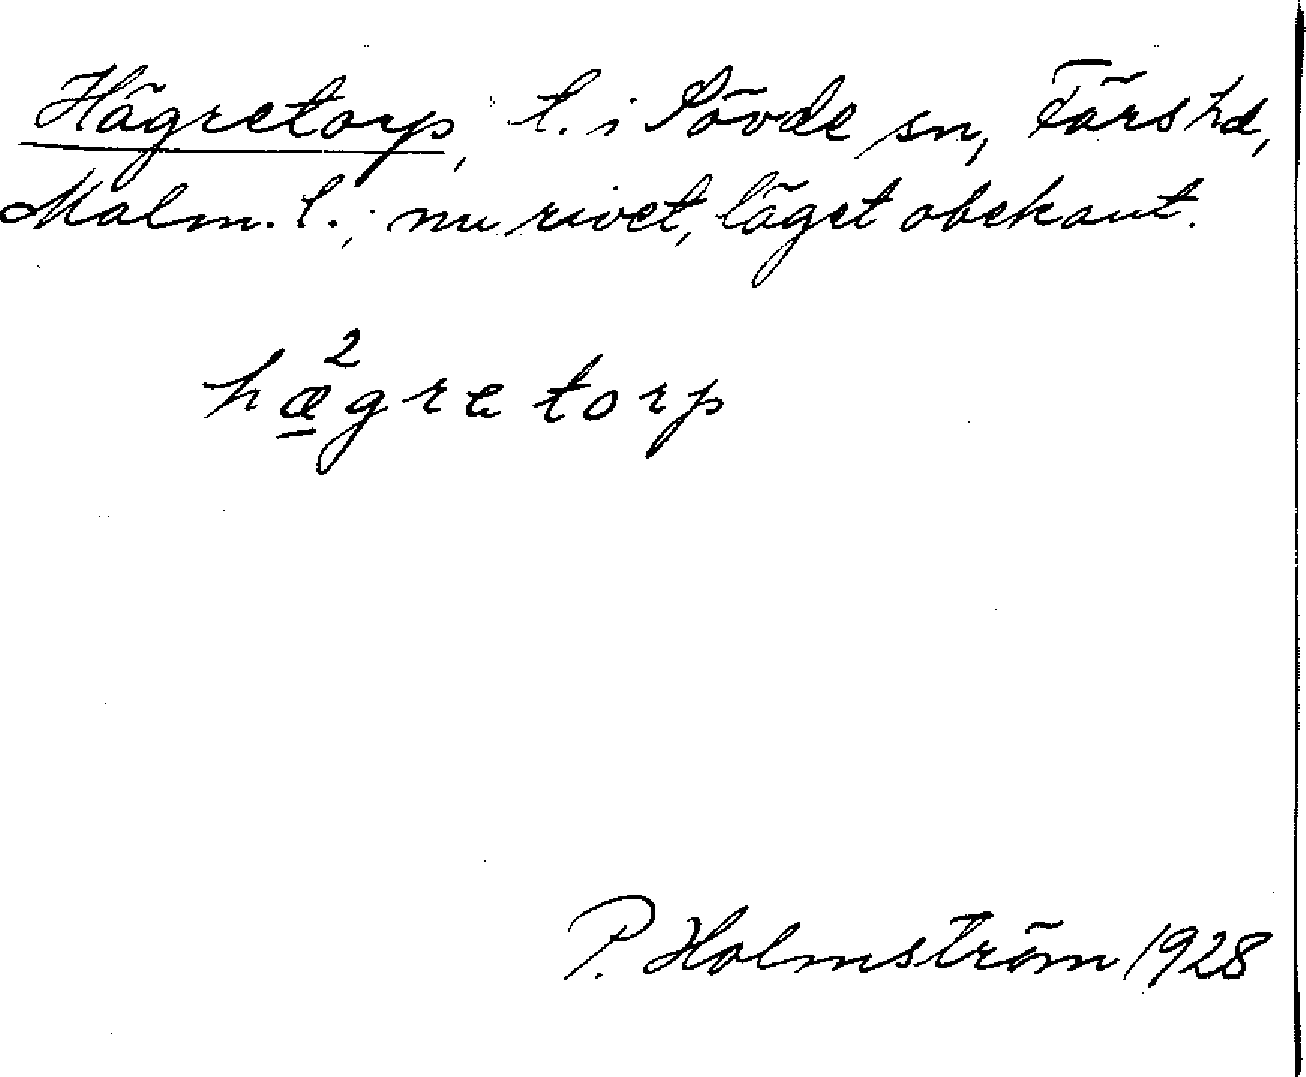 Hägretorp, t. i Sövde sn, Färs hd,
Malm. l.; nu rivet, läget obekant.
hæ̱²gre torp
P. Holmström 1928